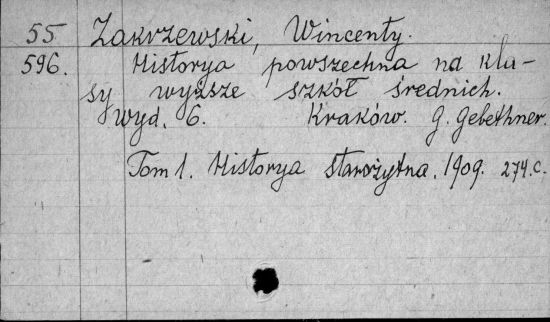 55 Zakrzewski, Wincenty.
596. Historya powszechna na kla-
sy wyższe szkół średnich.
wyd. 6. Kraków. G. Gebethner.
Tom 1. Historya starożytna. 1909. 274.c.